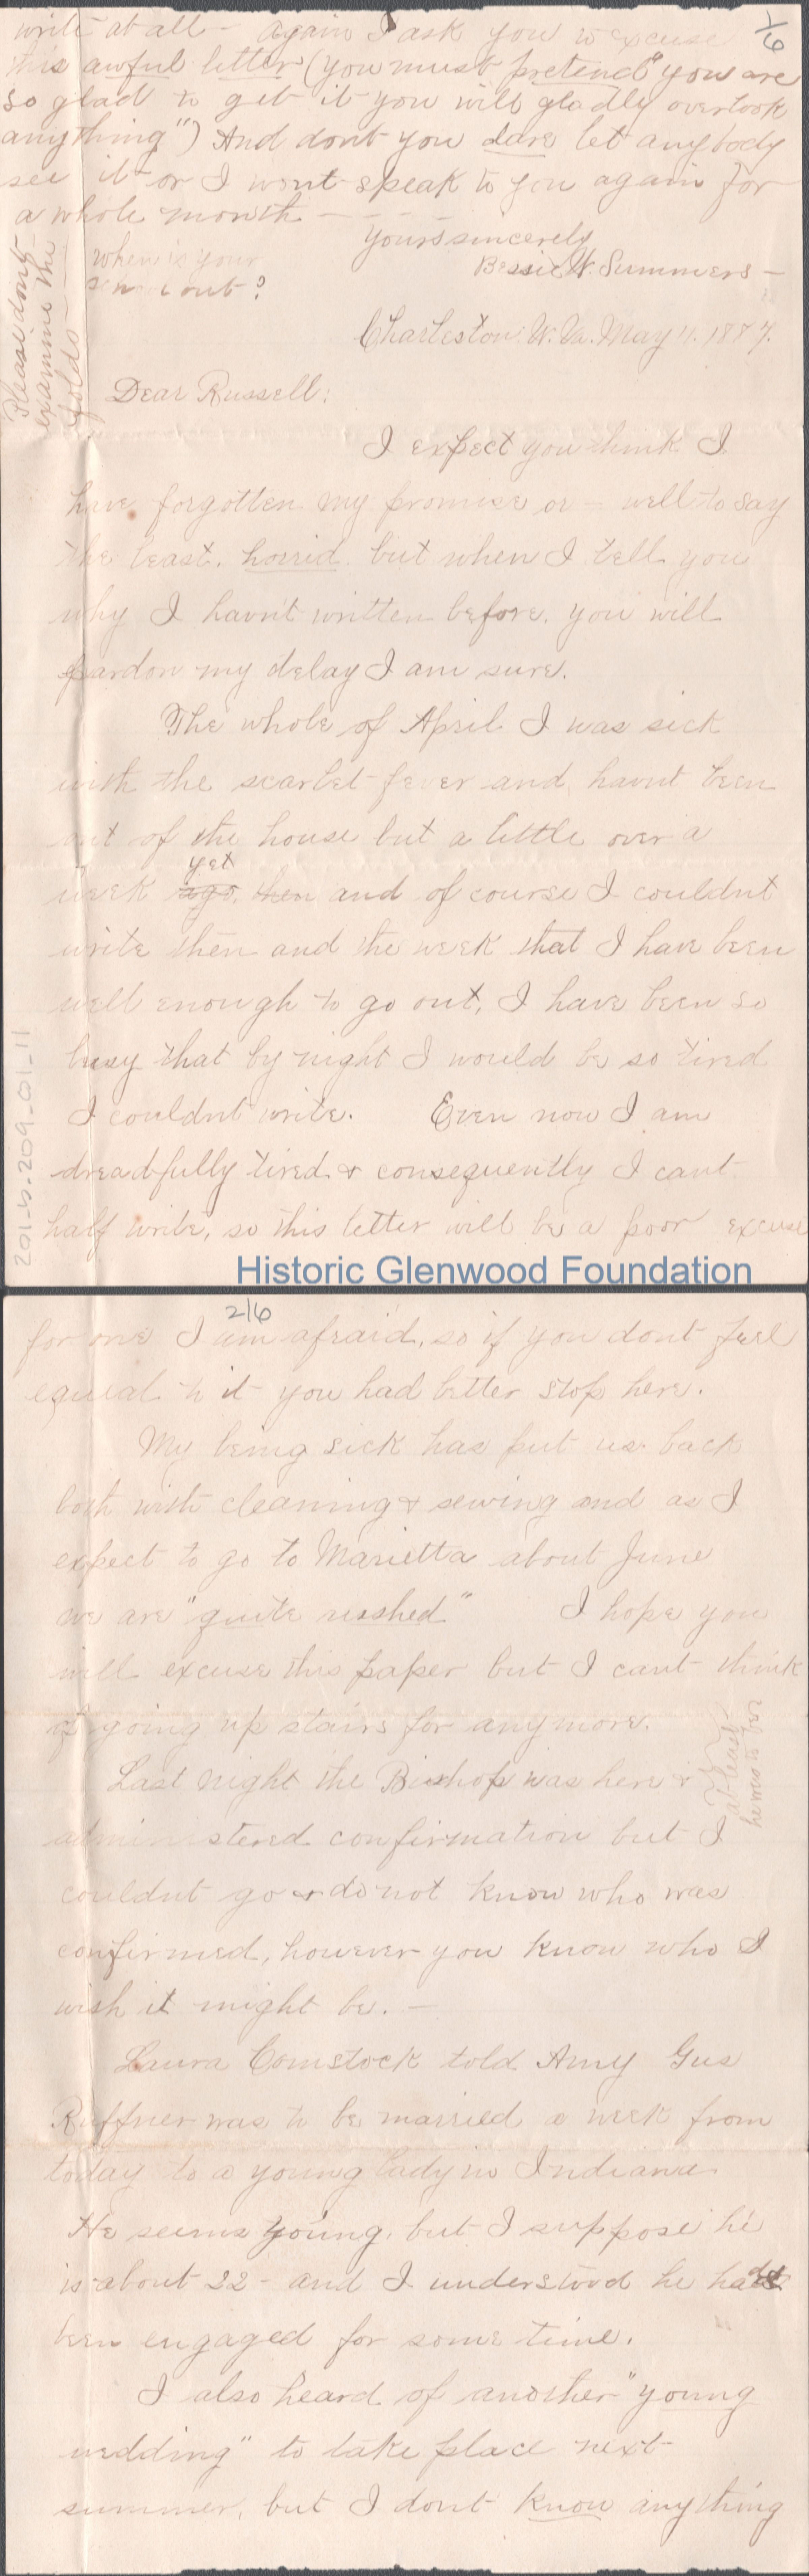 write at all - again I ask you to excuse
this awful letter (you must pretend "you are
so glad to get it you will gladly overlook
anything") And dont you dare let anybody
see it or I wont speak to you again for
a whole month - - - -
Yours sincerely
Bessie W. Summers -
when is your
out?
Please dont
examine the
folds
1/6
Charleston W. Va. May 11. 1887.
Dear Russell:
I expect you think I
have forgotten my promise or - well to say
the least, horrid, but when I tell you
why I havn't written before, you will
pardon my delay I am sure.
The whole of April I was sick
with the scarlet fever and, havnt been
out of the house but a little over a
week ago. then yet and of course I couldnt
write then and the week that I have been
well enough to go out, I have been so
busy that by night I would be so tired
I couldnt write. Even now I am
dreadfully tired & consequently I cant
half write, so this letter will be a poor excuse
201-5-209-01-11
Historic Glenwood Foundation
2/6
for one I am afraid, so if you dont feel
equal to it you had better stop here.
My being sick has put us back
both with cleaning & sewing and as I
expect to go to Marietta about June
we are "quite rushed" I hope you
will excuse this paper but I cant think
of going up stairs for anymore.
Last night the Bishop was here &
at least
he was to be
administered confirmation but I
couldnt go & do not know who was
confirmed, however you know who I
wish it might be. -
Laura Comstock told Amy Gus
Ruffner was to be married a week from
today to a young lady in Indiana
He seems young, but I suppose he
is about 22 - and I understood he had
been engaged for some time.
I also heard of another "young
wedding" to take place next
summer, but I dont know anything